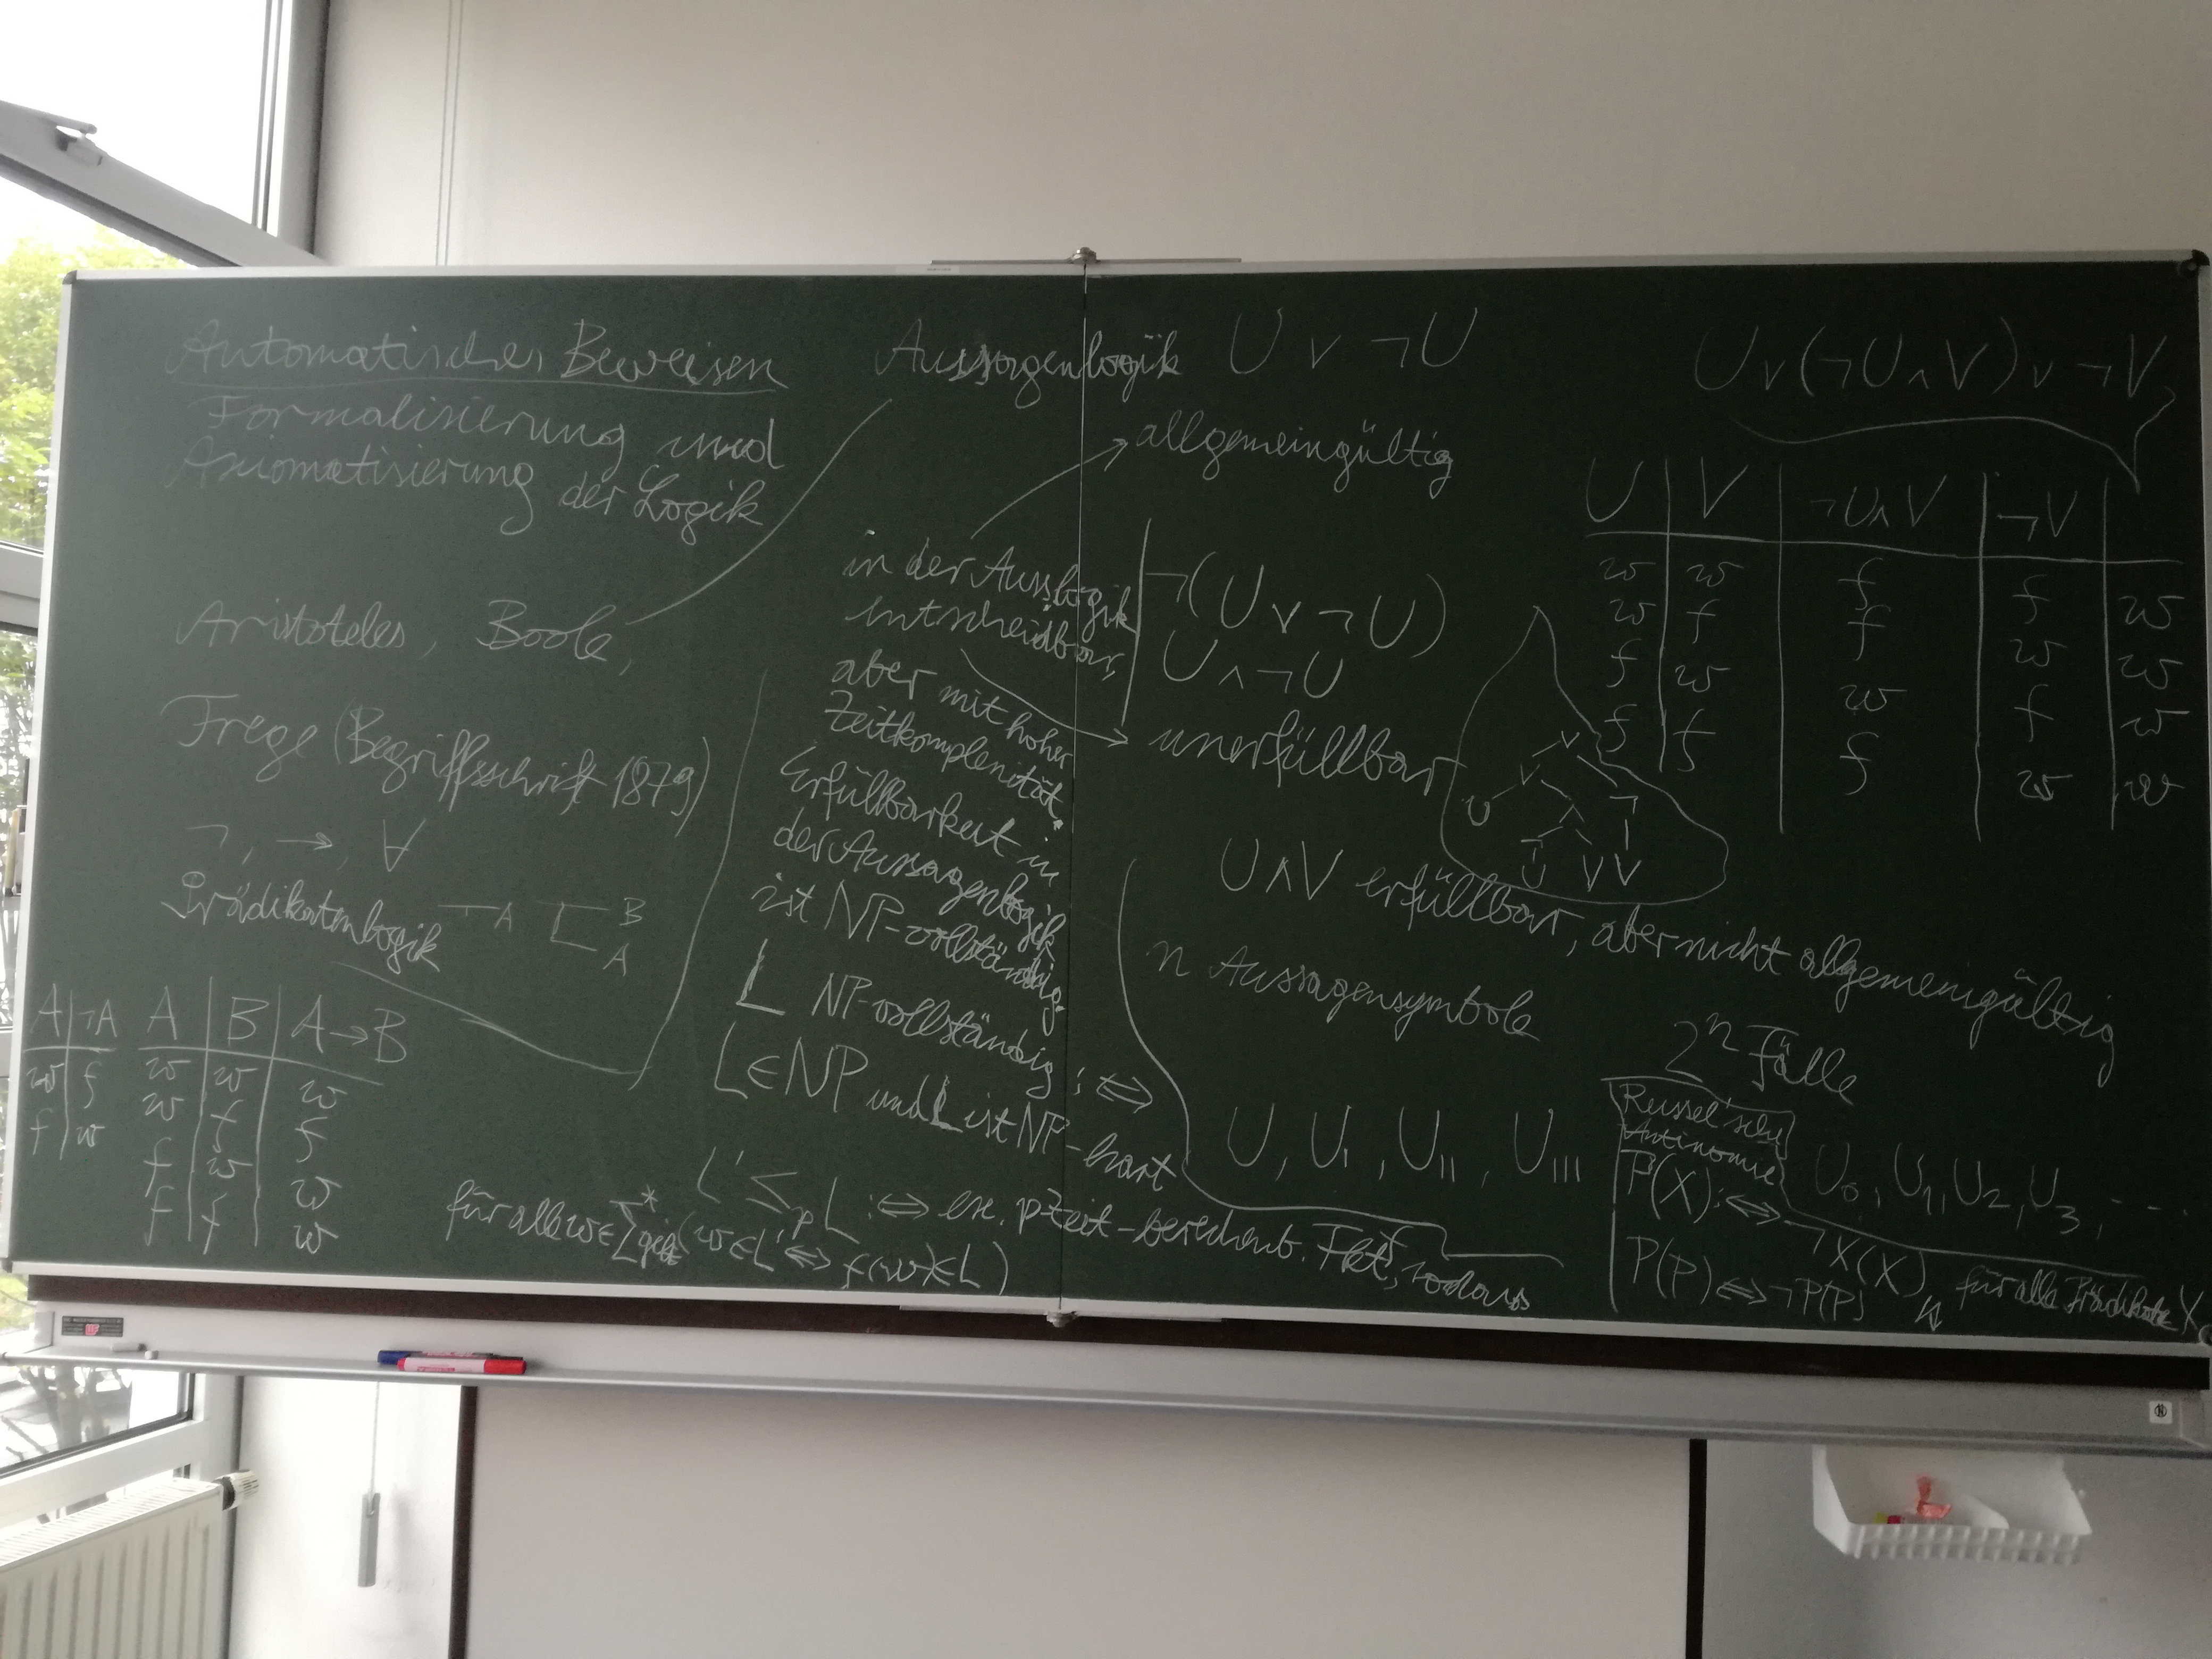 Automatisches Beweisen
Formalisierung und
Axiomatisierung der Logik
Aristoteles, Boole,
Frege (Begriffsschrift 1879)
¬, →, ∀
Prädikatenlogik
A
B
A
A | ¬A
w | f
f | w
A | B | A→B
w | w | w
w | f | f
f | w | w
f | f | w
Aussagenlogik U ∨ ¬U
allgemeingültig
in der Auss.logik
entscheidbar,
aber mit hoher
Zeitkomplexität.
Erfüllbarkeit in
der Aussagenlogik
ist NP-vollständig.
L NP-vollständig :⇔
L∈NP und L ist NP-hart
L' ≤p L :⇔ ex. pZeit-berechenb. Fkt. f, sodass
für alle w∈Σ* gilt (w∈L' ⇔ f(w)∈L)
¬(U ∨ ¬U)
U ∧ ¬U
unerfüllbar
U∧V erfüllbar, aber nicht allgemeingültig
n Aussagensymbole
2ⁿ Fälle
U, U|, U||, U|||
U₀, U₁, U₂, U₃, ...
U ∨ (¬U ∧ V) ∨ ¬V
U | V | ¬U∧V | ¬V |
w | w | f | f | w
w | f | f | w | w
f | w | w | f | w
f | f | f | w | w
∨
∨ ¬
U ∧
¬ V V
U
Russel'sche
Antinomie
P(X) :⇔ ¬X(X), für alle Prädikate X
P(P) ⇔ ¬P(P)